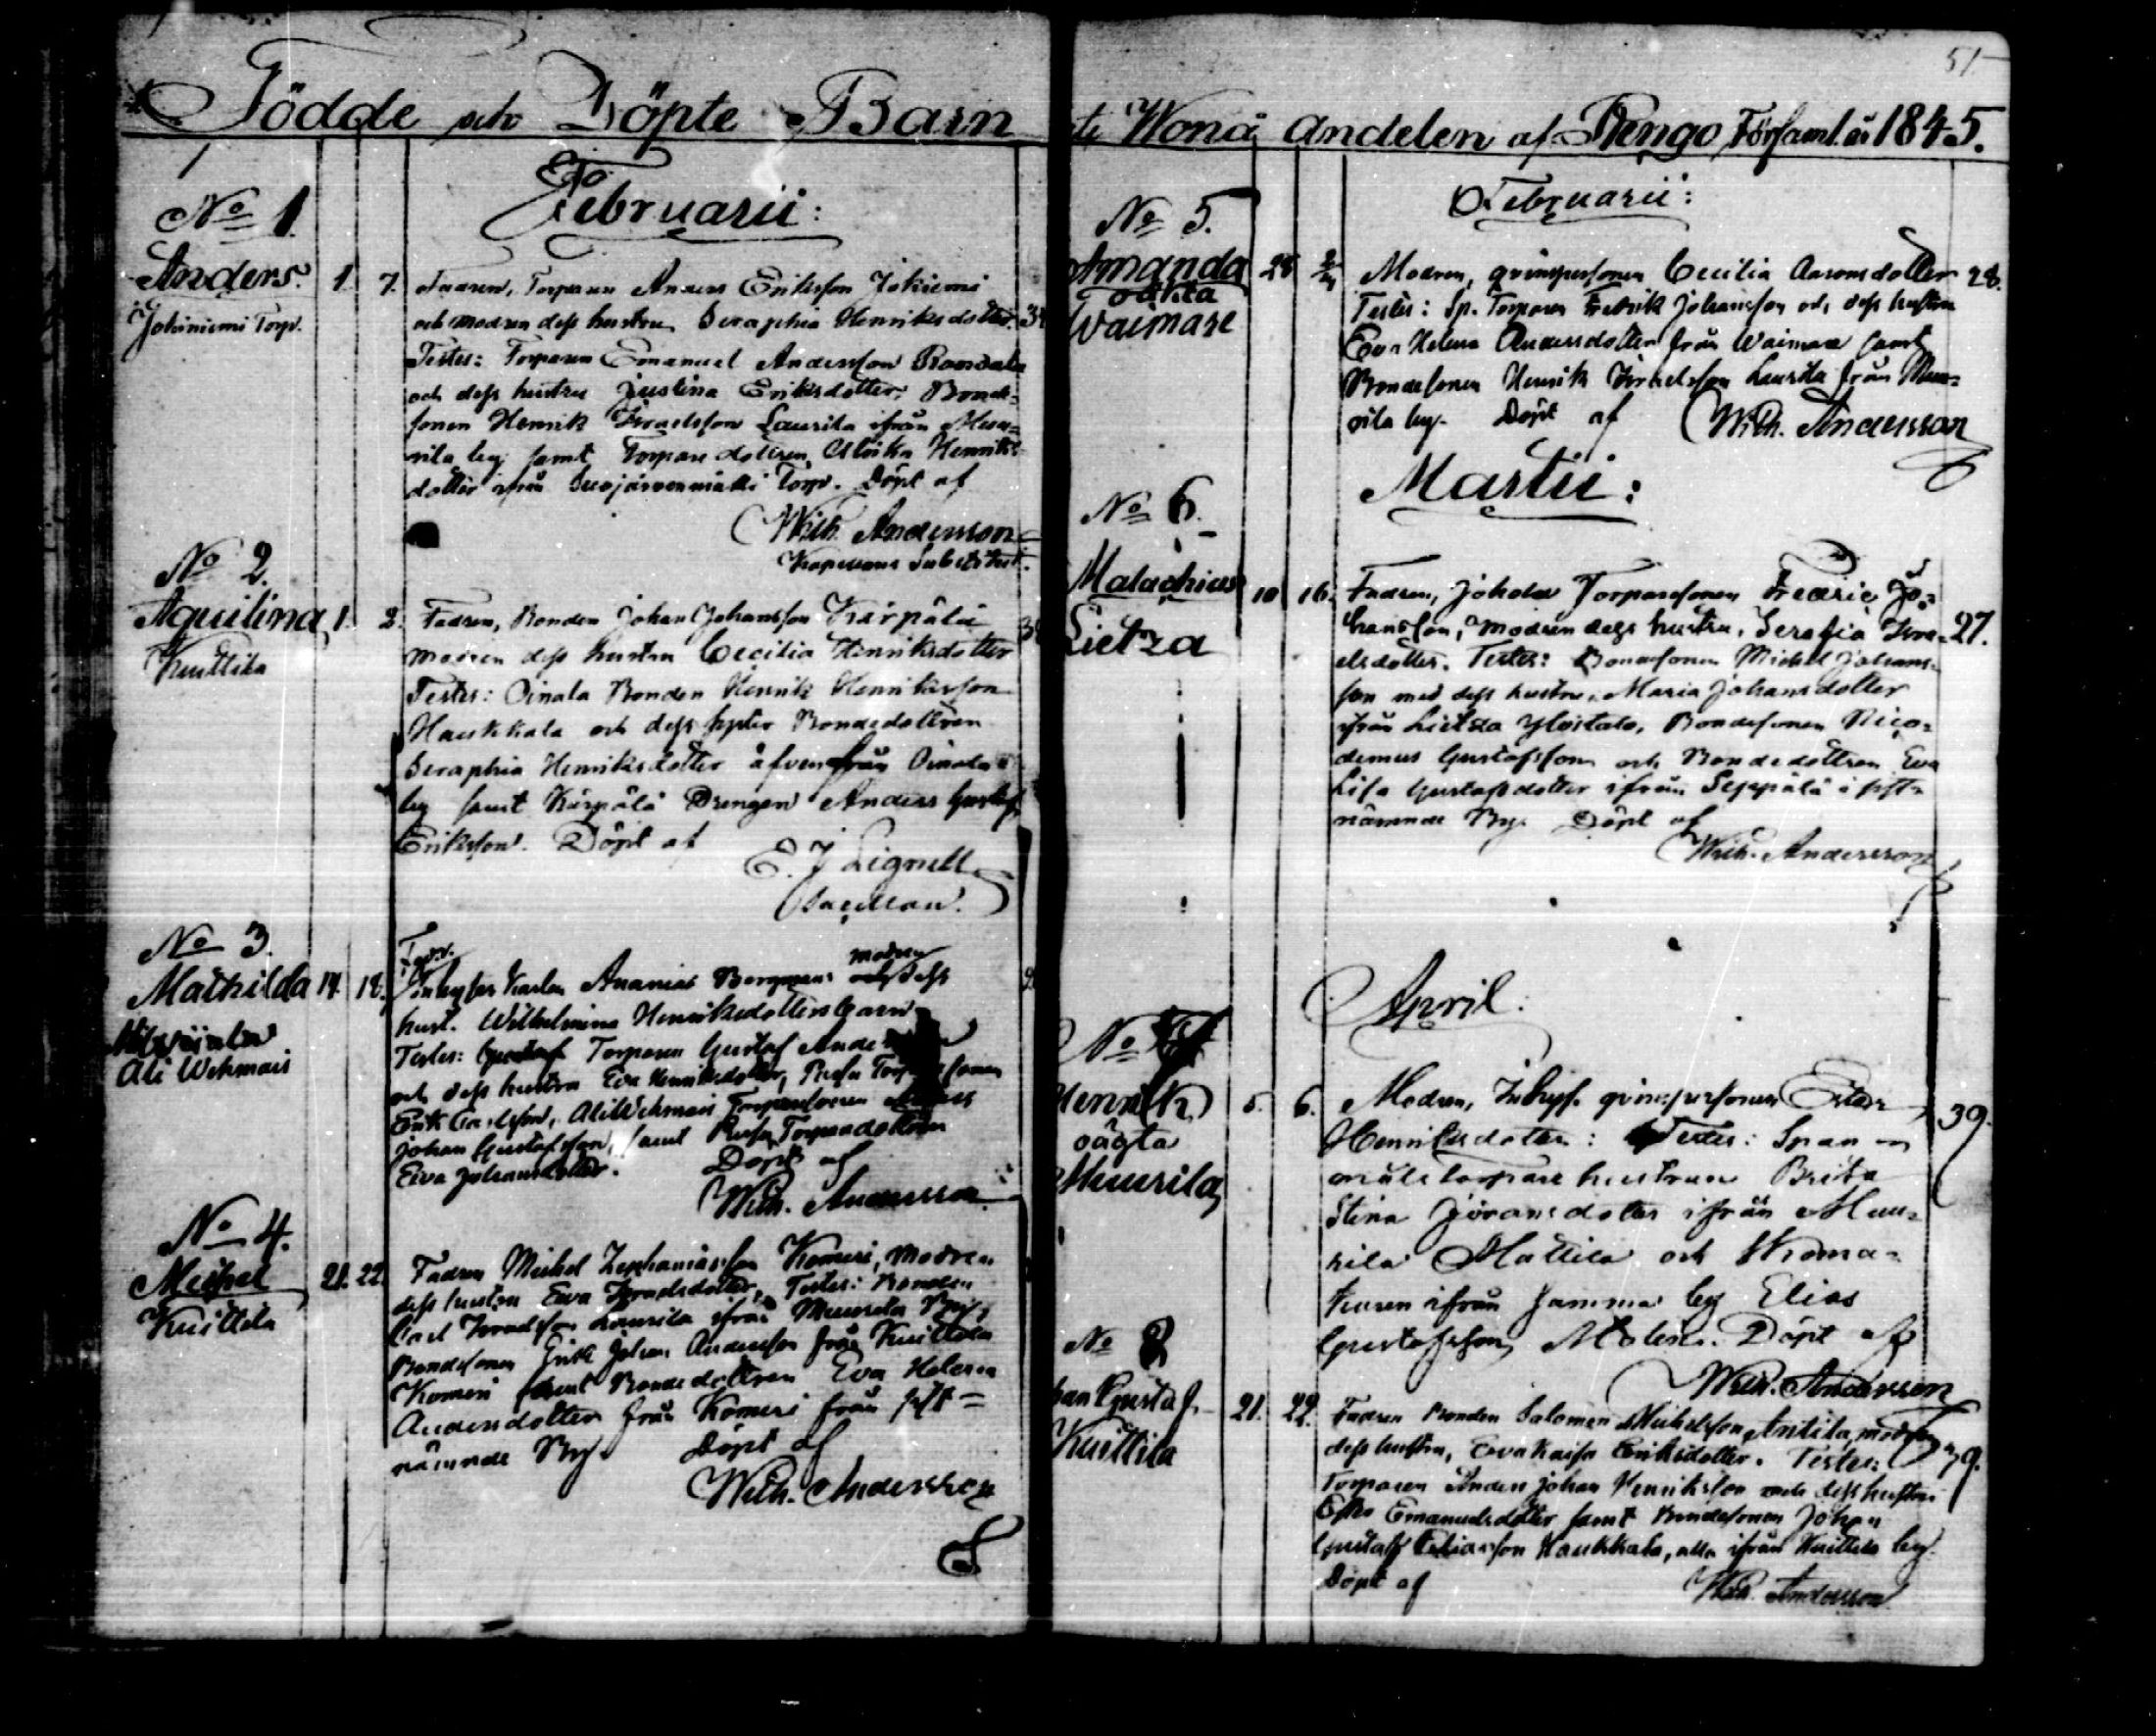 51
Födde och Döpte Barn
1
No 1.
Februarii:
Anders. 1. 7. Fadren, Torparen Anders Eriksson Jokiniemi
Jokiniemi Torp.
och modren dess hustru Seraphia Henriksdotter.
Testes: Torparen Emanuel Andersson
och dess hustru Justina Eriksdotter, Bonde-
sonen Henrik Israelsson Laurila ifrån Muu-
rila by samt Torpare dottren Henriks-
dotter ifrån Torp. Döpt af
Wilh. Andersson
No 2.
Aquilina 1. 2. Fadren, Bonden Johan Johansson Kärpälä
Kuittila
modren dess hustru Cecilia Henriksdotter
Testes: Oinala Bonden Henrik Henriksson
Haukkala och dess syster Bondedottren
Seraphia Henriksdotter äfven från Oinala
by samt Kärpälä Drengen Anders Gustaf
Eriksson. Döpt af
E. J Lignell
Sacellan.
No 3.
Mathilda 14. 18. Inhyses Karlen Ananias Bergman modren dess
Ali Wehmais
hust. Wilhelmina Henriksdotters barn
Testes: Torparen Gustaf
och dess hustru Eva Henriksdotter,
Erik Carlsson, Ali Wehmais Torparesonen
Johan Gustafsson, samt Torparedottren
Eva Johansdotter. Döpt af
Wilh. Andersson
No 4.
Michel 21. 22. Fadren Michel Zephaniasson Komeri, Modren
Kuittila
dess hustru Eva Israelsdotter, Testes: Bonden
Carl Israelsson Laurila ifrån Muurila By,
Bondesonen Erik Johan Andersson från Kuittila
Komeri samt Bondedottren Eva Helena
Andersdotter från Komeri från sist-
nämnde By. Döpt af
Wilh. Andersson
uti Wonå andelen af Rengo Församl. år 1845.
No 5.
Februarii:
Amanda 28 2/4 Modren, qvinspersonen Cecilia Aaronsdotter 28.
oäkta
Waimare
Testes: Sp. Torparen Fredrik Johansson och dess hustru
Eva Helena Andersdotter från Waimare samt
Bondesonen Henrik Israelsson Laurila från Muu-
rila by. Döpt af Wilh. Andersson
Martii:
No 6.
Malachius 10 16. Fadren, Jokela Torparesonen Fredric Jo-
Lietza
hansson, modren dess hustru, Serafia Isra- 27.
elsdotter. Testes: Bondesonen Michel Johans-
son med dess hustru, Maria Johansdotter
ifrån Lietza Ylöstalo, Bondesonen Nico-
demus Gustafsson och Bondedottren Eva
Lisa Gustafsdotter ifrån Seppälä i sist-
nämnde By. Döpt af
Wilh. Andersson
April.
No
Henrik 5. 6. Modren, Inhyses qvinspersonen Ester 39.
oägta
Muurila
Henriksdotter: Testes: Span-
måls torpare hustrun Brita
Stina Göransdotter ifrån Muu-
rila Mattila och
ifrån Jamma by Elias
Gustafsson Molin. Döpt af
Wilh. Andersson
No 8
han Gustaf 21. 22. Fadren Bonden Salomon Michelsson Antila, modren
Kuittila
dess hustru, Eva Kaisa Eriksdotter. Testes:
Torparen Anders Johan Henriksson och dess hustru
Emanuelsdotter samt Bondesonen Johan
Gustaf Haukkala, alla ifrån Kuittila by.
Döpt af Wilh. Andersson